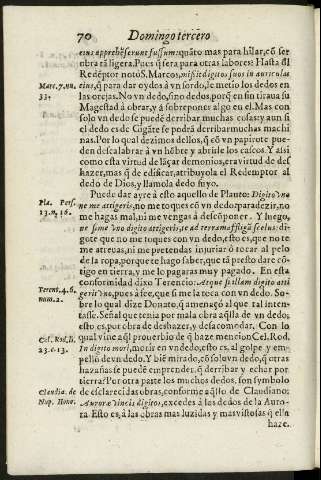 70 Domingo tercero
eius apprehẽserunt fussum: quãto mas para hilar, cõ ser
obra tã ligera. Pues q̃ sera para otras labores: Hasta ďl
Redẽptor notò S. Marcos, misit digitos suos in auriculas
Marc. 7. nu. 33.
eius, q̃ para dar oydos à vn sordo, le metio los dedos en
las orejas. No vn dedo, sino dedos, porq̃ en si retiraua su
Magestad à obrar, y à sobreponer algo en el. Mas con
solo vn dedo se puede derribar muchas cosas: y aun si
el dedo es de Gigãte se podrà derribar muchas machi
nas. Por lo qual dezimos dellos, q̃ cõ vn papirote pue-
den descalabrar à vn hõbre y abrirle los cascos. Y assi
como esta virtud de lãçar demonios, era virtud de des
hazer, mas q̃ de edificar, atribuyola el Redemptor al
dedo de Dios, y llamola dedo suyo.
Puede dar ayre à esto aquello de Plauto: Digito vno
Pla. Pers. 13. n. 16.
ne me attigeris, no me toques cõ vn dedo: paradezir, no
me hagas mal, ni me vengas à descõponer. Y luego,
ne si me vno digito attigeris, te ad terram affligã scelus: di-
gote que no me toques con vn dedo, esto es, que no te
me atreuas, ni me pretendas injuriar ò tocar al pelo
de la ropa, porque te hago saber, que tã presto dare cõ-
tigo en tierra, y me lo pagaras muy pagado. En esta
conformidad dixo Terencio: Atque si illam digito atti
Terent. 4. 6. num. 2.
gerit vno, pues à fee, que si me la toca con vn dedo. So-
bre lo qual dize Donato, q̃ amenaçò al que tal inten-
tasse. Señal que tenia por mala obra aq̃lla de vn dedo,
esto es, por obra de deshazer, y desacomodar. Con lo
qual vine aq̃l prouerbio de q̃ haze mencion Cel. Rod.
Cel. Rod. li. 23. c. 13.
In digito mori, morir en vn dedo, esto es, al golpe, y em-
pellõ de vn dedo. Y biẽ mirado, cõ solo vn dedo, q̃ otras
hazañas se puedẽ emprender, q̃ derribar y echar por
tierra? Por otra parte los muchos dedos, son symbolo
de esclarecidas obras, conforme aq̃llo de Claudiano:
Claudia. de Nup. Hono.
Auroræ vincis digitos, excedes à los dedos de la Auro-
ra. Esto es, à las obras mas luzidas y mas vistosas q̃ ella
haze.